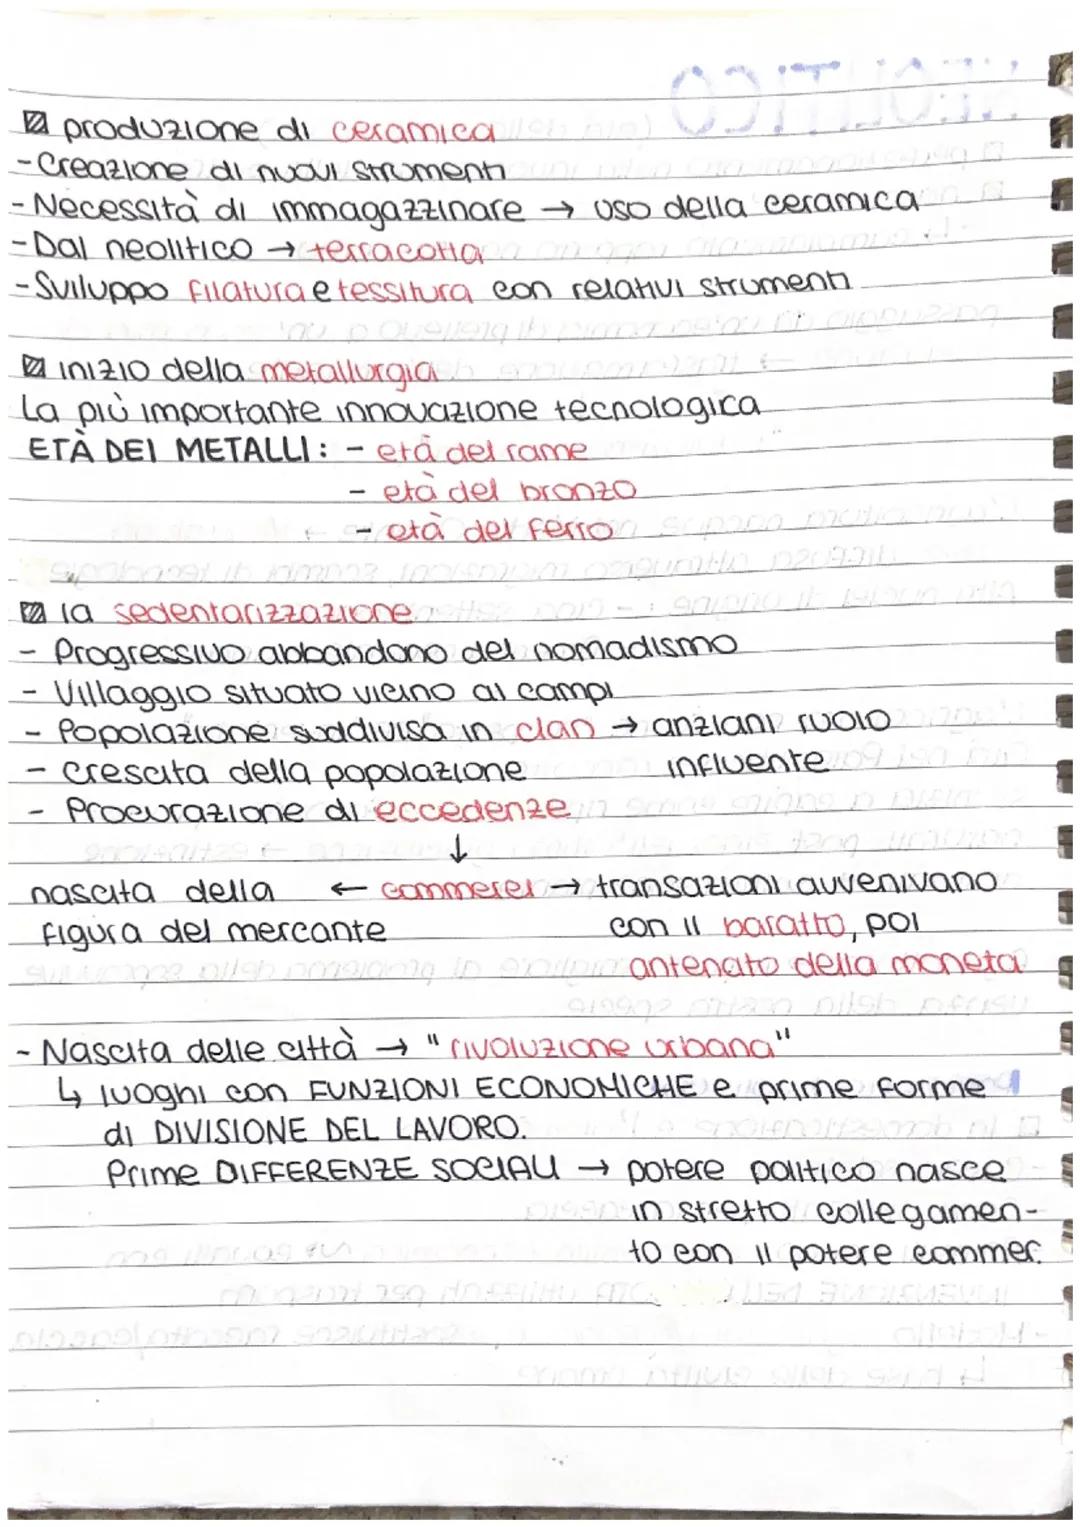 produzione di ceramica
- Creazione di nuovi strumenti
- Necessità di immagazzinare → uso della ceramica
- Dal neolitico → terracotta
- Sviluppo filatura e tessitura con relativi strumenti
inizio della metallurgia
La più importante innovazione tecnologica
ETÀ DEI METALLI: - età del rame
- età del bronzo
- età del ferro
la sedentarizzazione
- Progressivo abbandono del nomadismo
- Villaggio situato vicino ai campi
- Popolazione suddivisa in clan → anziani ruolo
- crescita della popolazione influente
- Procurazione di eccedenze
↓
nascita della ← commerci → transazioni avvenivano
figura del mercante con il baratto, poi
antenato della moneta
- Nascita delle città → "rivoluzione urbana"
↳ luoghi con FUNZIONI ECONOMICHE e prime forme
di DIVISIONE DEL LAVORO.
Prime DIFFERENZE SOCIALI → potere politico nasce
in stretto collegamen-
to con il potere commer.